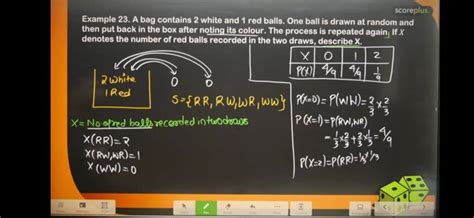 scoreplus.
Example 23. A bag contains 2 white and 1 red balls. One ball is drawn at random and
then put back in the box after noting its colour. The process is repeated again. If X
denotes the number of red balls recorded in the two draws, describe X.
X 0 1 2
P(X) 4/9 4/9 1/9
2 White
1 Red
0 0
S={RR, RW, WR, WW}
X=No of red balls recorded in two draws
X(RR)=2
X(RW,WR)=1
X(WW)=0
P(X=0)=P(WW)=2/3×2/3
P(X=1)=P(RW,WR)
=1/3×2/3+2/3×1/3=4/9
P(X=2)=P(RR)=1/3×1/3